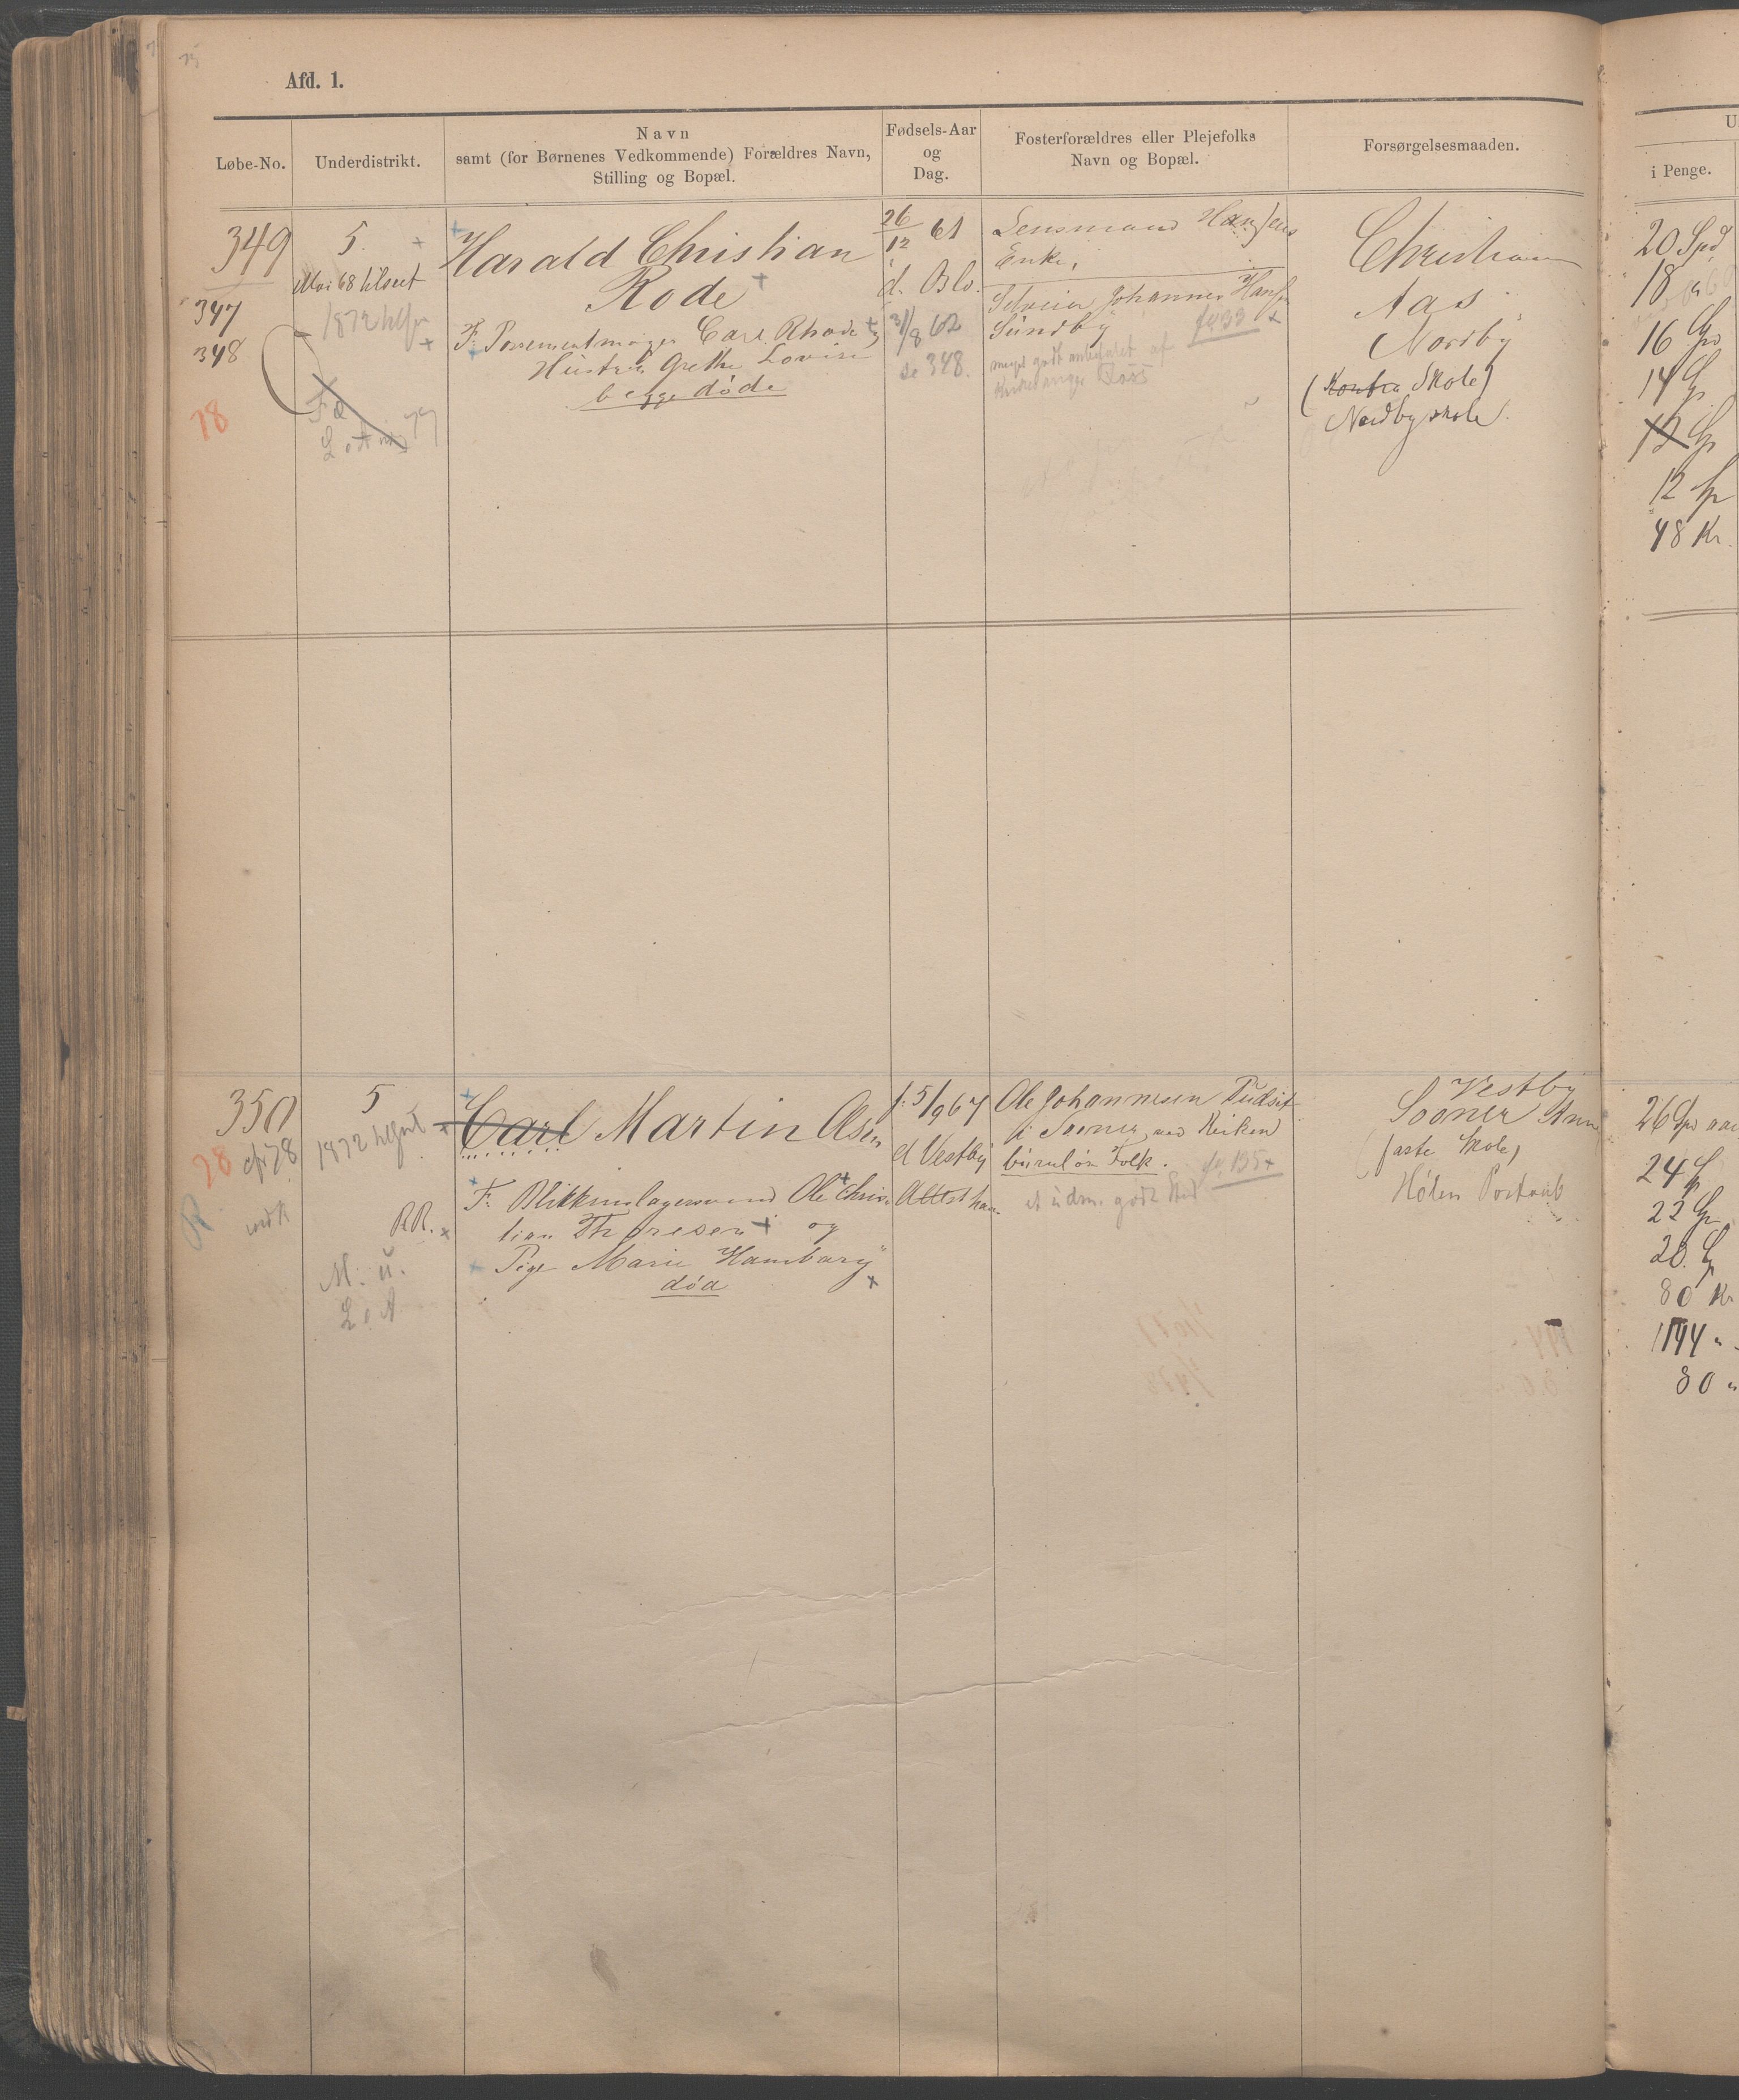 Afd. 1.
Løbe-No.
Underdistrikt.
Navn
samt (for Børnenes Vedkommende) Forældres Navn,
Stilling og Bopæl.
Fødsels-Aar
og
Dag.
Fosterforældres eller Plejefolks
Navn og Bopæl.
Forsørgelsesmaaden.
U
i Penge.
349
347
348
78
5.
Mai 68 tilseet
1872
Harald Christian
Rode
F. Possementmager Carl Rhode
Hustru Grethe Lovise
begge døde
26/12 61
d. Oslo.
31/8 62
se 348.
Lensmand Hansens
Enke,
Selveier Johannes Hansen
Sundby
meget godt anbefalet af
Kirkesanger
Christian
Aas
Nordby
(Kontra Skole)
Nordby skole.
20 Spd
18
16 Sp
14 Sp
12 Sp
12 Sp
48 Kr.
350
78
R
5
1872
RR.
M. u.
L. A
Carl Martin Olsen
F. Blikkenslagersvend Ole Chris
tian Thoresen og
Pige Marie Hamborg
død
f. 5/9 67
d Vestby
Attest
Ole Johannesen
i Sooner ved Kirken
barnløse Folk.
et udm. godt Sted
Vestby
Sooner Annex
faste Skole,
Hølen Postaab
26 Spd
24 Sp
22 Sp
20. Sp
80 Kr
144 "
80 "